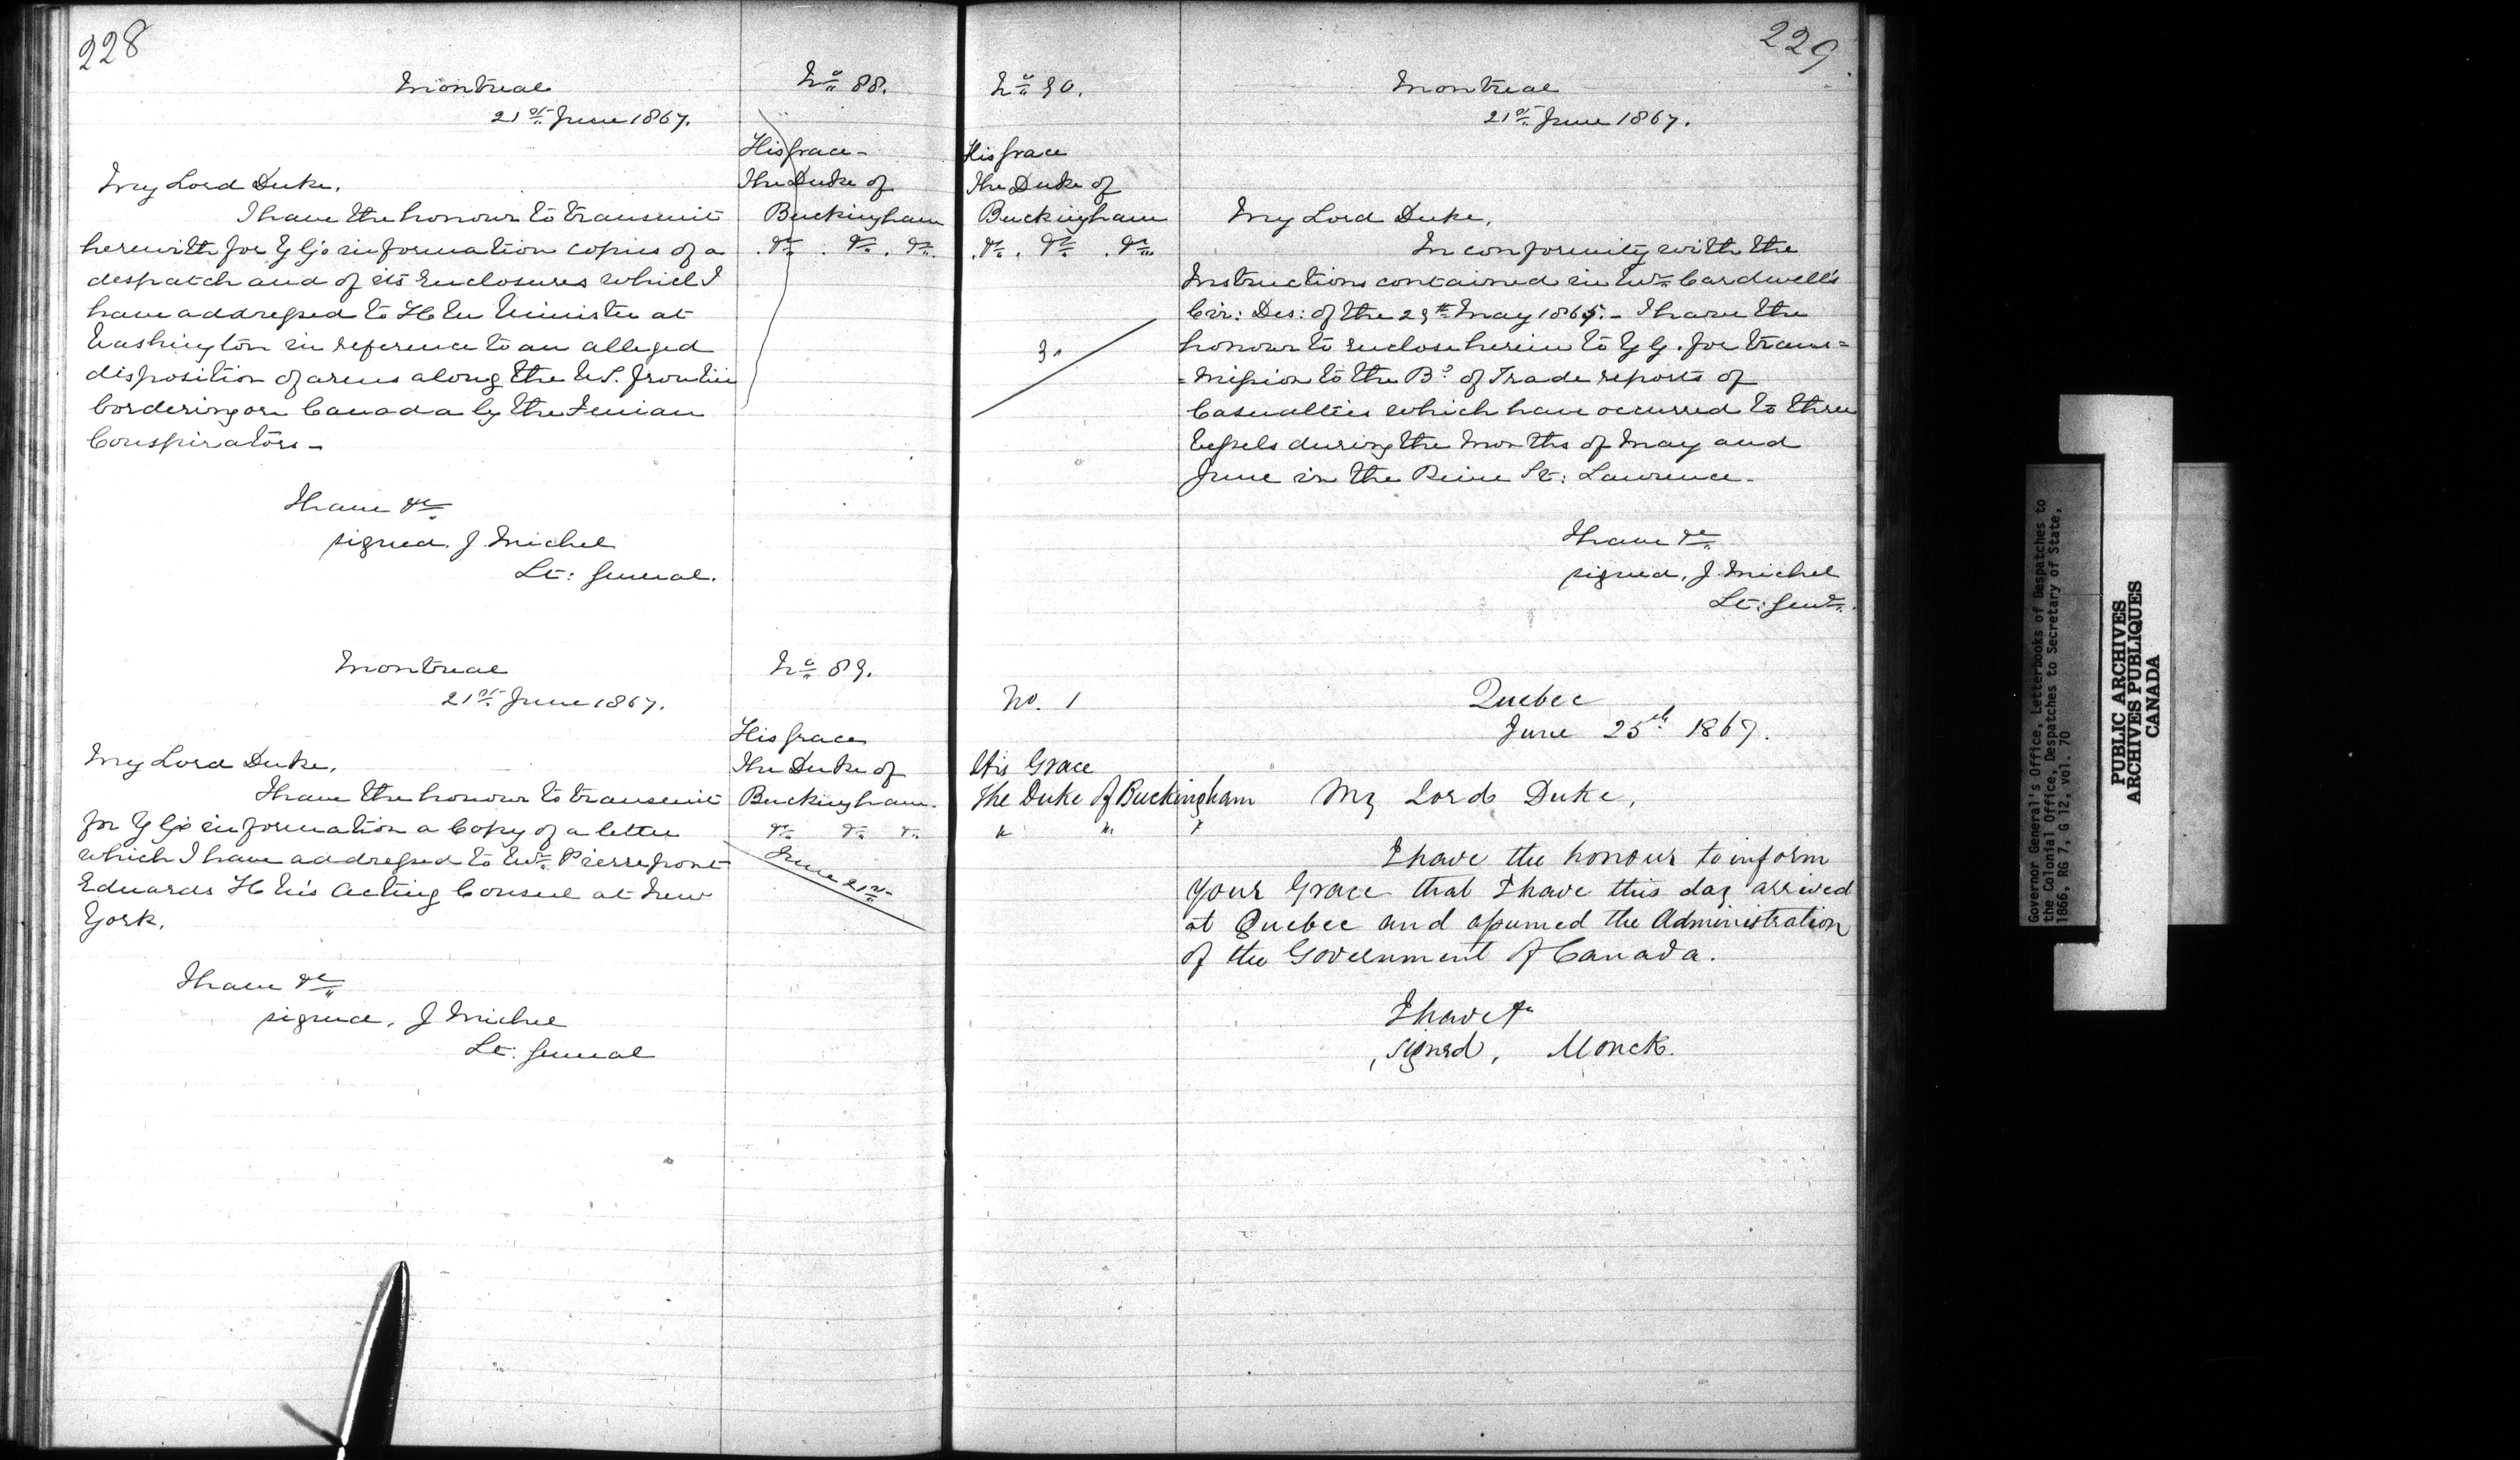 228
Montreal
21st June 1867.
No 88.
His Grace
The Duke of
Buckingham
&c. &c. &c.
My Lord Duke,
I have the honour to transmit
herewith for Y G's information copies of a
despatch and of its enclosures which I
have addressed to H M Minister at
Washington in reference to an alleged
disposition of arms along the U.S. frontier
bordering on Canada by the Fenian
Conspirators
I have &c
signed. J. Michel
Lt: General.
Montreal
21st June 1867.
No 89.
His Grace
The Duke of
Buckingham.
&c &c &c
June 21st
My Lord Duke,
I have the honour to transmit
for Y G's information a Copy of a letter
which I have addressed to Mr. Pierrepont
Edwards H M's Acting Consul at New
York.
I have &c
signed, J Michel
Lt. General
229
No 90.
Montreal
21st June 1867.
His Grace
The Duke of
Buckingham
&c. &c. &c.
My Lord Duke,
In conformity with the
Instructions contained in Mr. Cardwell's
Cir: Des: of the 29th May 1865. - I have the
honour to enclose herein to Y G. for trans=
=mission to the Bd of Trade reports of
Casualties which have occurred to three
Vessels during the Months of May and
June in the River St: Lawrence.
I have &c
signed, J. Michel
Lt: Genl.
No. 1
Quebec
June 25th 1867.
His Grace
The Duke of Buckingham
My Lord Duke,
I have the honour to inform
Your Grace that I have this day arrived
at Quebec and assumed the Administration
of the Government of Canada.
I have &c
signed, Monck.
Governor General's Office, Letterbooks of Despatches to
the Colonial Office, Despatches to Secretary of State,
1866, RG 7, G 12, vol. 70
PUBLIC ARCHIVES
ARCHIVES PUBLIQUES
CANADA